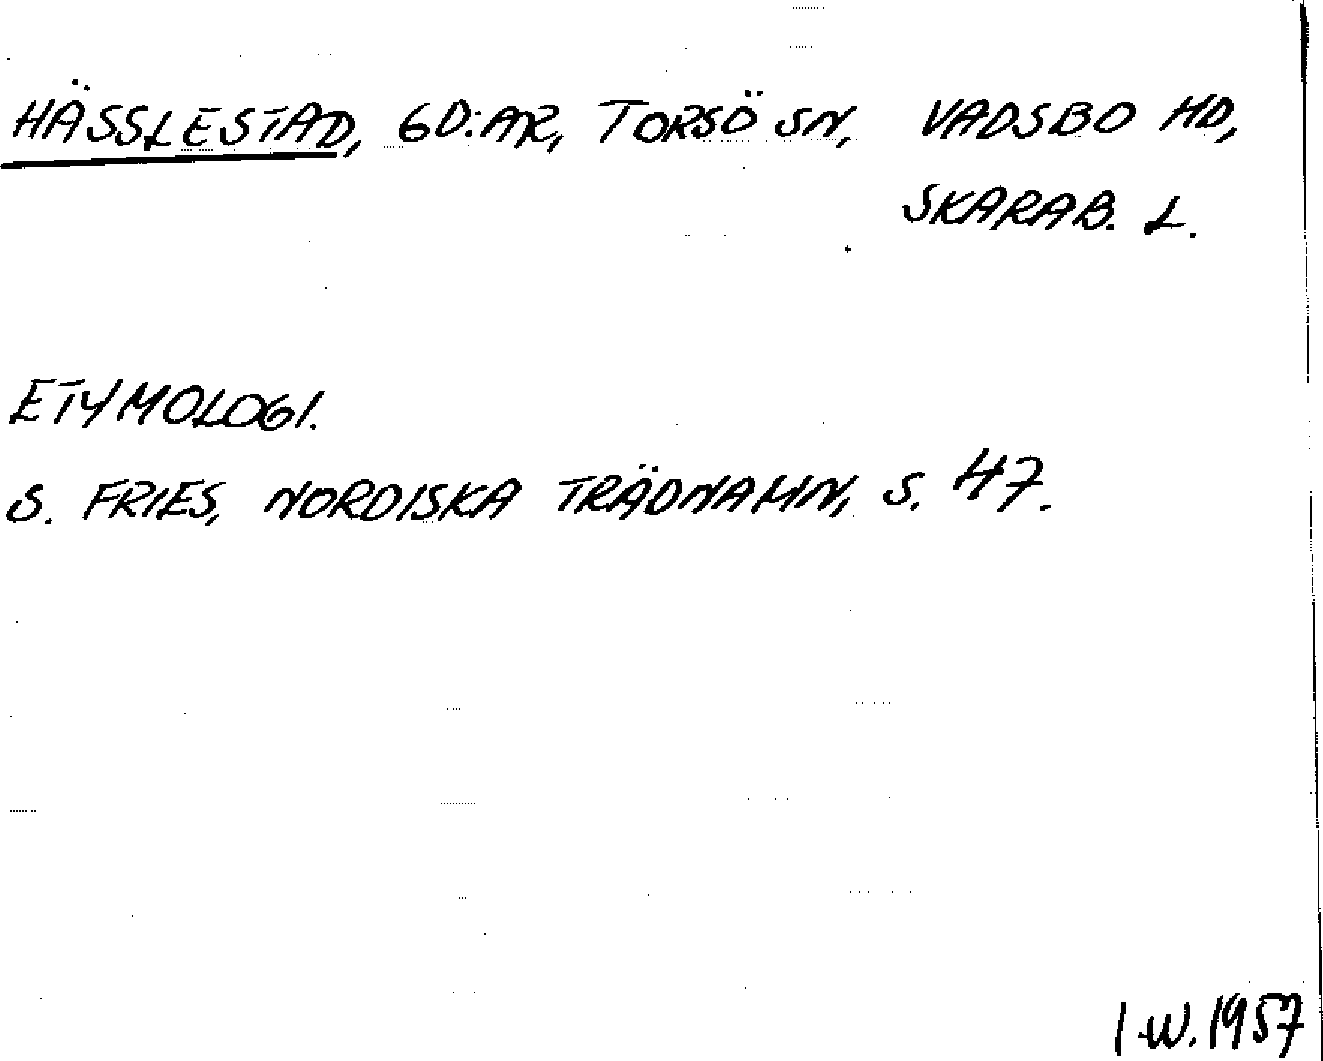 HÄSSLESTAD, GD:AR, TORSÖ SN, VADSBO HD,
SKARAB. L.
ETYMOLOGI.
S. FRIES, NORDISKA TRÄDNAMN, S. 47.
I.W. 1957